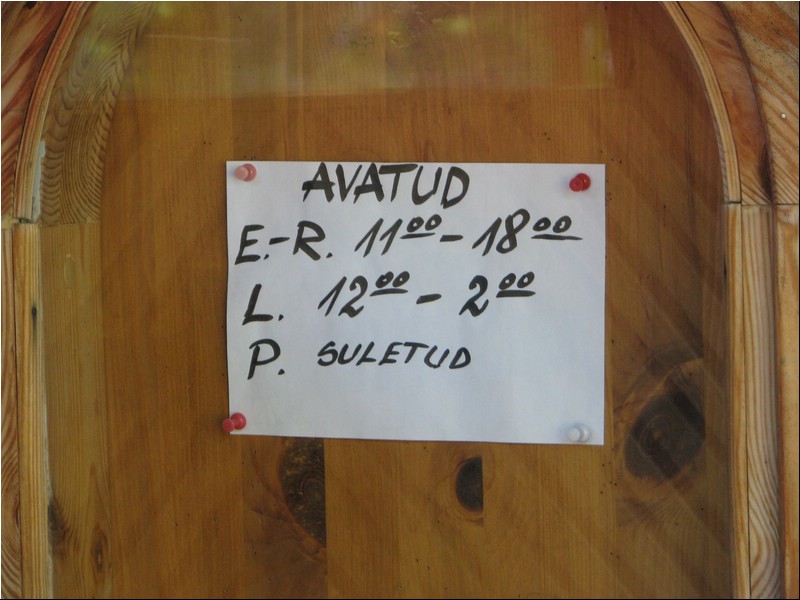 AVATUD
E.-R. 11⁰⁰-18⁰⁰
L. 12⁰⁰- 2⁰⁰
P. SULETUD